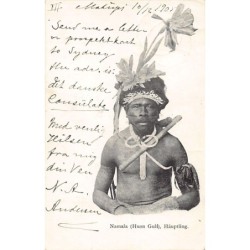 Matupi 10/2 190
Send me a letter
or prospektkort
to Sydney
Min adr. is:
Det danske
Consulate
Med venlig
Hilsen
fra mig
din Ven
N. A.
Andersen
Numula (Huon Golf), Häuptling.